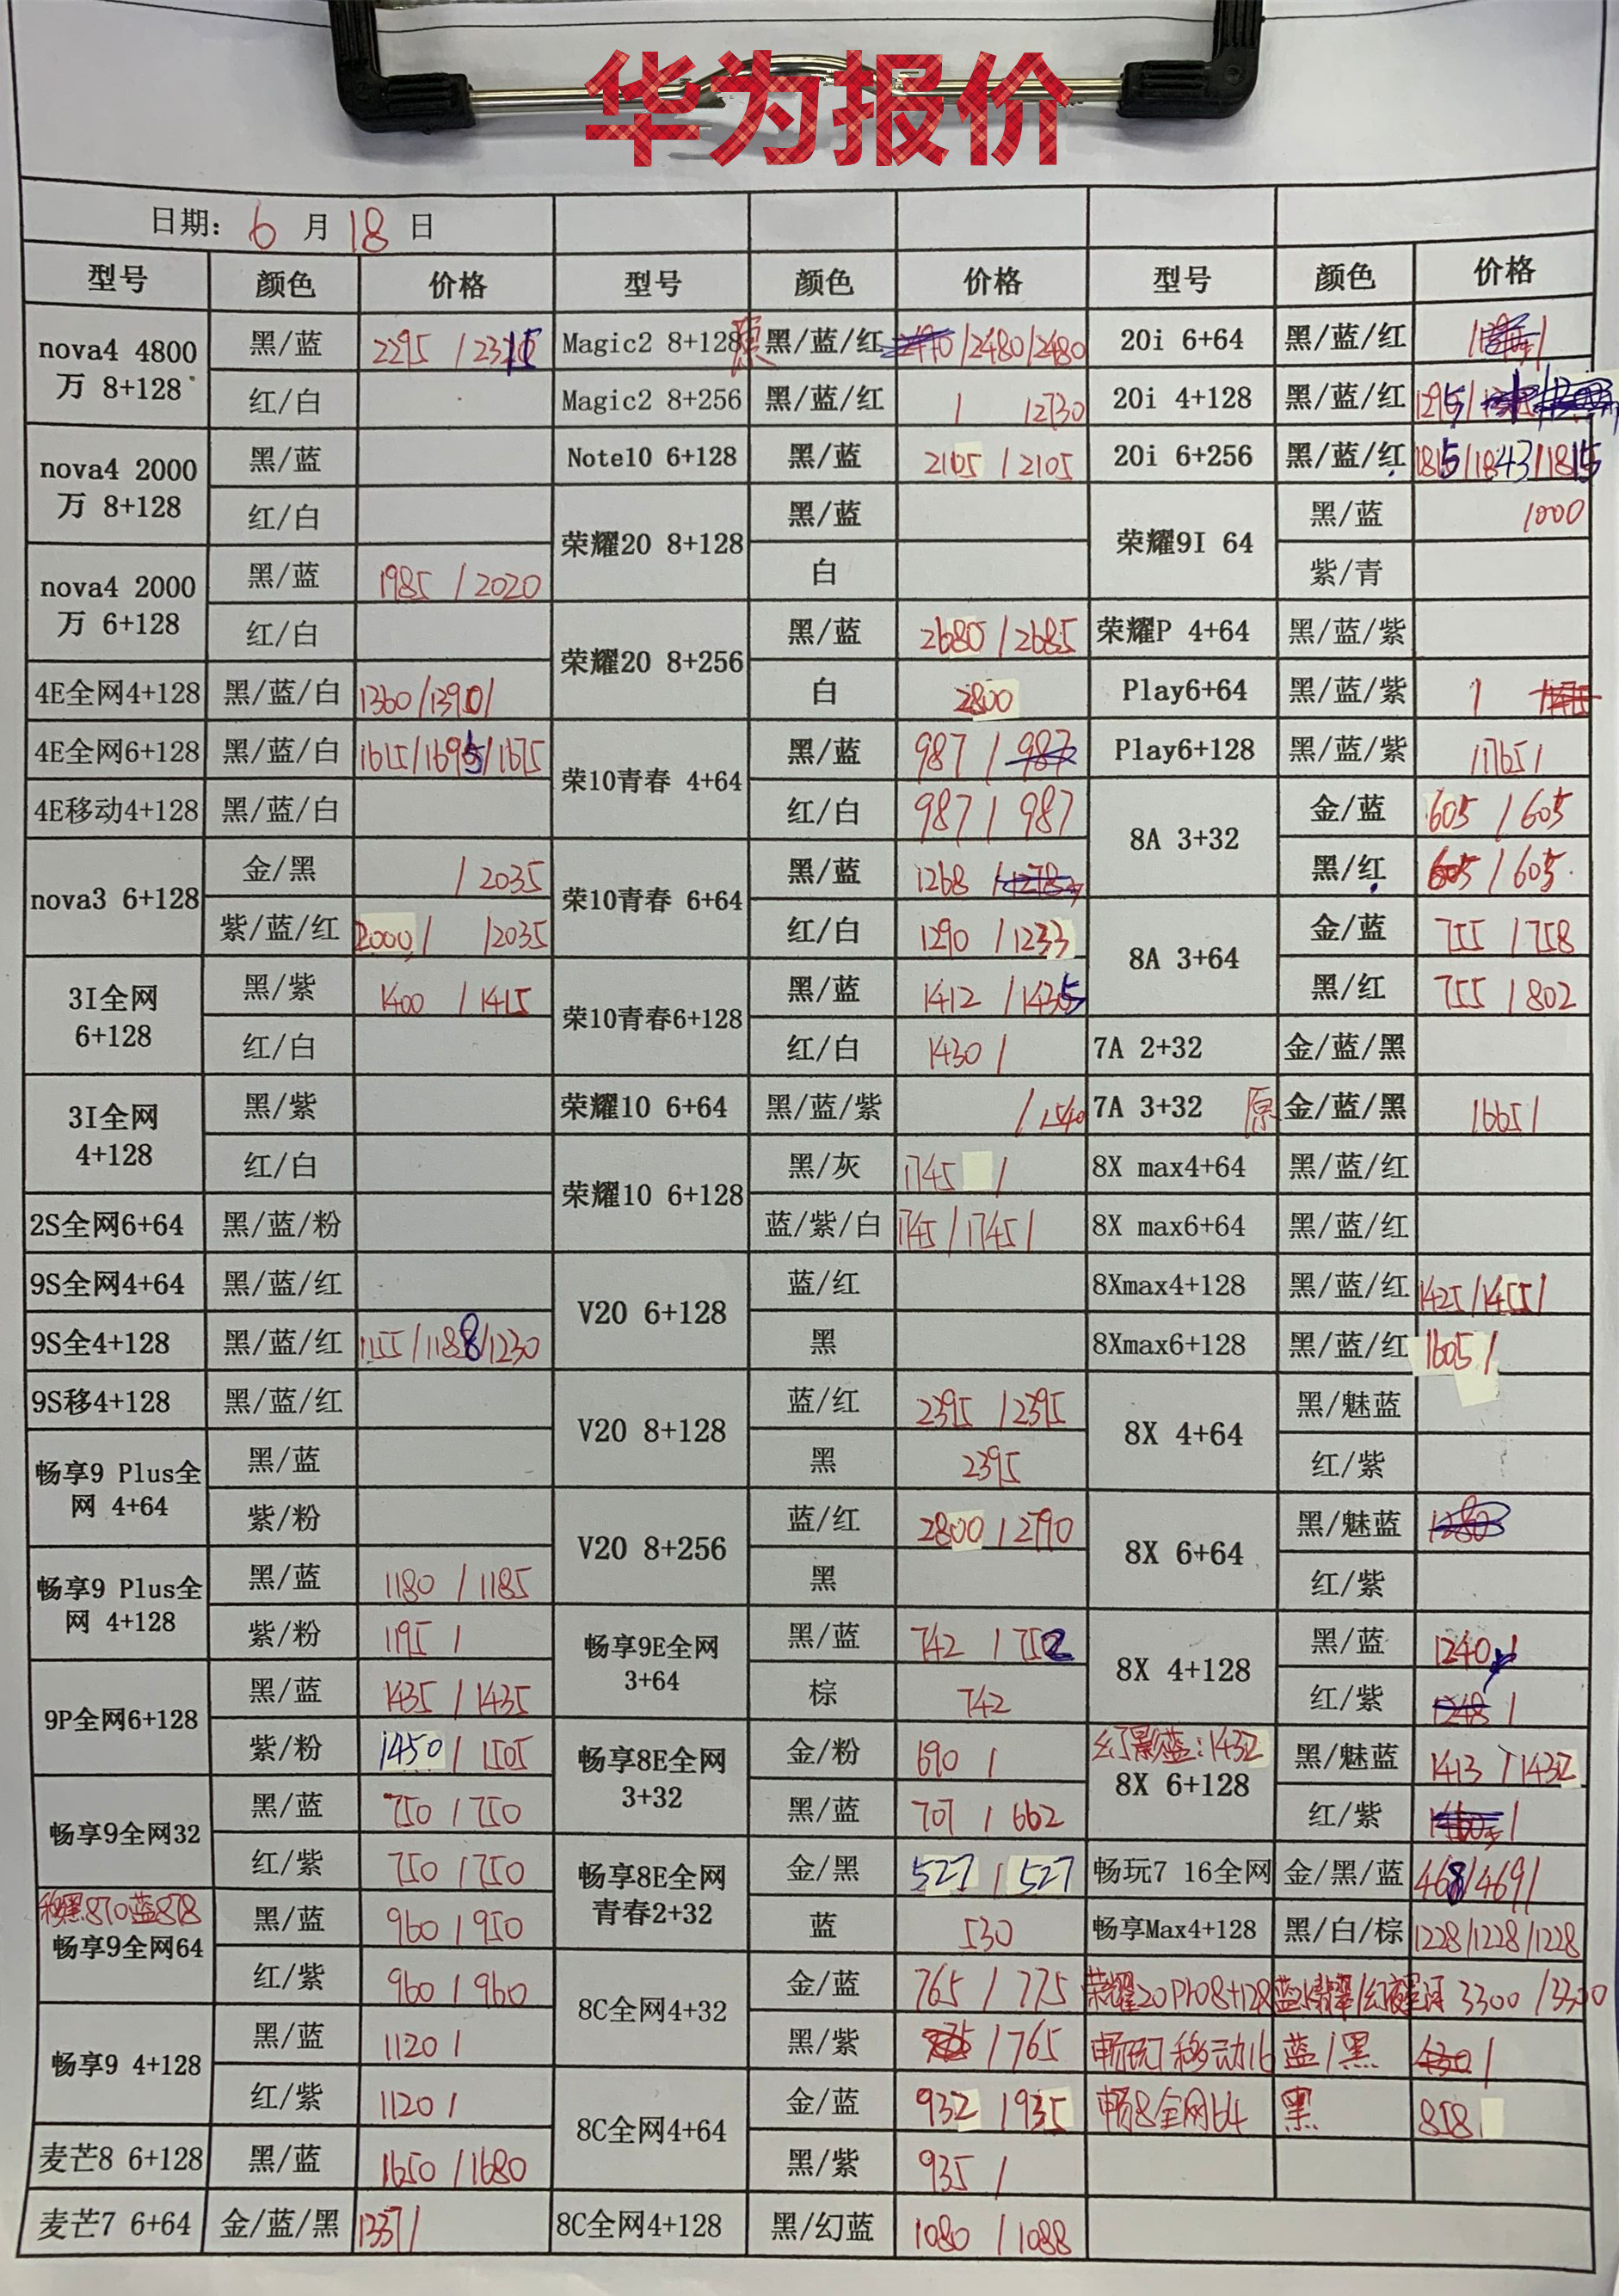 华为报价
日期: 6 月 18 日
型号 颜色 价格 型号 颜色 价格 型号 颜色 价格
nova4 4800万 8+128 黑/蓝 2295 / Magic2 8+128 原 黑/蓝/红 /2480/2480 20i 6+64 黑/蓝/红
红/白 Magic2 8+256 黑/蓝/红 / /2730 20i 4+128 黑/蓝/红 1295/
nova4 2000万 8+128 黑/蓝 Note10 6+128 黑/蓝 2105 / 2105 20i 6+256 黑/蓝/红 1815/1843/1815
红/白 荣耀20 8+128 黑/蓝 荣耀9I 64 黑/蓝 1000
nova4 2000万 6+128 黑/蓝 1985 / 2020 白 紫/青
红/白 荣耀20 8+256 黑/蓝 2680 / 2685 荣耀P 4+64 黑/蓝/紫
4E全网4+128 黑/蓝/白 1360/1390/ 白 2800 Play6+64 黑/蓝/紫 /
4E全网6+128 黑/蓝/白 1615/1695/1675 荣10青春 4+64 黑/蓝 987 / 987 Play6+128 黑/蓝/紫 /1765/
4E移动4+128 黑/蓝/白 红/白 987 / 987 8A 3+32 金/蓝 605 / 605
nova3 6+128 金/黑 / 2035 荣10青春 6+64 黑/蓝 1268 / 1278 黑/红 605 / 605
紫/蓝/红 2000/ /2035 红/白 1290 / 1233 8A 3+64 金/蓝 755 / 758
3I全网 6+128 黑/紫 1400 / 1415 荣10青春6+128 黑/蓝 1412 / 1435 黑/红 755 / 802
红/白 红/白 1430 / 7A 2+32 金/蓝/黑
3I全网 4+128 黑/紫 荣耀10 6+64 黑/蓝/紫 / 1540 7A 3+32 原 金/蓝/黑 /665/
红/白 荣耀10 6+128 黑/灰 1745 / 8X max4+64 黑/蓝/红
2S全网6+64 黑/蓝/粉 蓝/紫/白 1745/1745/ 8X max6+64 黑/蓝/红
9S全网4+64 黑/蓝/红 V20 6+128 蓝/红 8Xmax4+128 黑/蓝/红 1425/1455/
9S全4+128 黑/蓝/红 1155/1188/1230 黑 8Xmax6+128 黑/蓝/红 1605/
9S移4+128 黑/蓝/红 V20 8+128 蓝/红 2395 / 2395 8X 4+64 黑/魅蓝
畅享9 Plus全网 4+64 黑/蓝 黑 2395 红/紫
紫/粉 V20 8+256 蓝/红 2800 / 2790 8X 6+64 黑/魅蓝 1280
畅享9 Plus全网 4+128 黑/蓝 1180 / 1185 黑 红/紫
紫/粉 1195 / 畅享9E全网 3+64 黑/蓝 742 / 752 8X 4+128 黑/蓝 1240 /
9P全网6+128 黑/蓝 1435 / 1435 棕 742 红/紫 1248 /
紫/粉 1450 / 1505 畅享8E全网 3+32 金/粉 690 / 幻影蓝:1432 8X 6+128 黑/魅蓝 1413 / 1432
畅享9全网32 黑/蓝 750 / 750 黑/蓝 707 / 662 红/紫 /
红/紫 750 / 750 畅享8E全网 青春2+32 金/黑 527 / 527 畅玩7 16全网 金/黑/蓝 468/469/
移黑870蓝878 畅享9全网64 黑/蓝 960 / 950 蓝 530 畅享Max4+128 黑/白/棕 1228/1228/1228
红/紫 960 / 960 8C全网4+32 金/蓝 765 / 775 荣耀20Pro8+128 蓝水翡翠/幻夜星河 3300 / 3300
畅享9 4+128 黑/蓝 1120 / 黑/紫 / 765 畅玩7移动16 蓝/黑 430 /
红/紫 1120 / 8C全网4+64 金/蓝 932 / 935 畅8全网64 黑 858
麦芒8 6+128 黑/蓝 1650 / 1680 黑/紫 935 /
麦芒7 6+64 金/蓝/黑 1337/ 8C全网4+128 黑/幻蓝 1080 / 1088